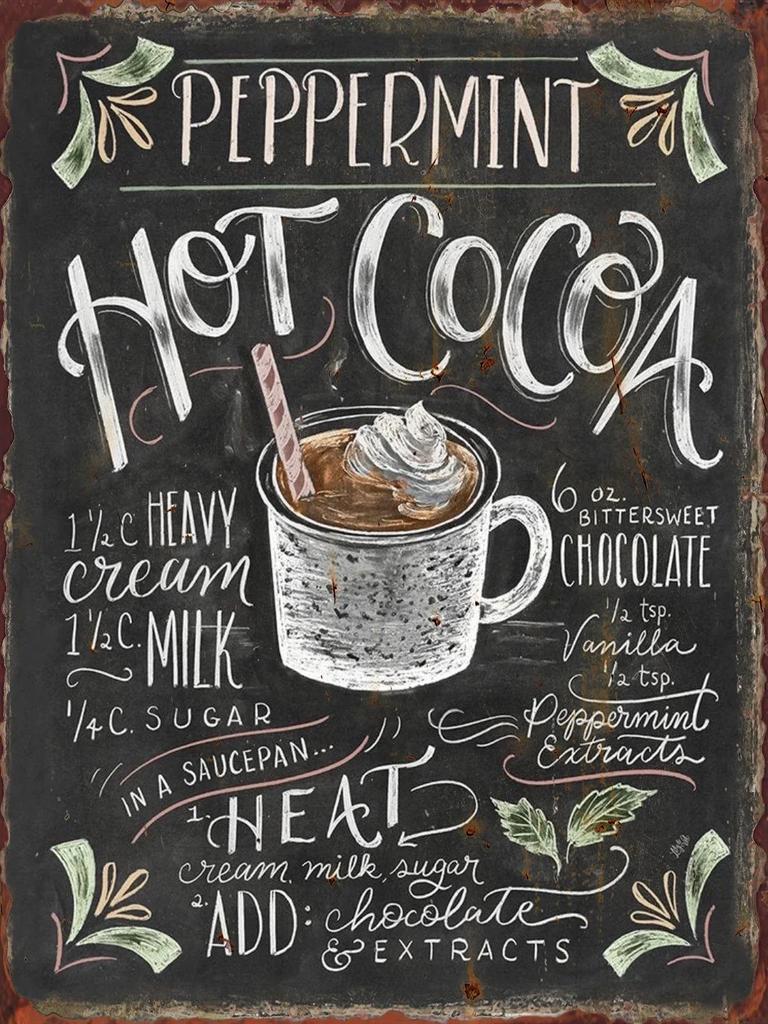 PEPPERMINT
HOT COCOA
1 1/2 C HEAVY
cream
1 1/2 C. MILK
1/4 C. SUGAR
6 oz.
BITTERSWEET
CHOCOLATE
1/2 tsp.
Vanilla
1/2 tsp.
Peppermint
Extracts
IN A SAUCEPAN...
1. HEAT
cream, milk, sugar
2. ADD: chocolate
& EXTRACTS